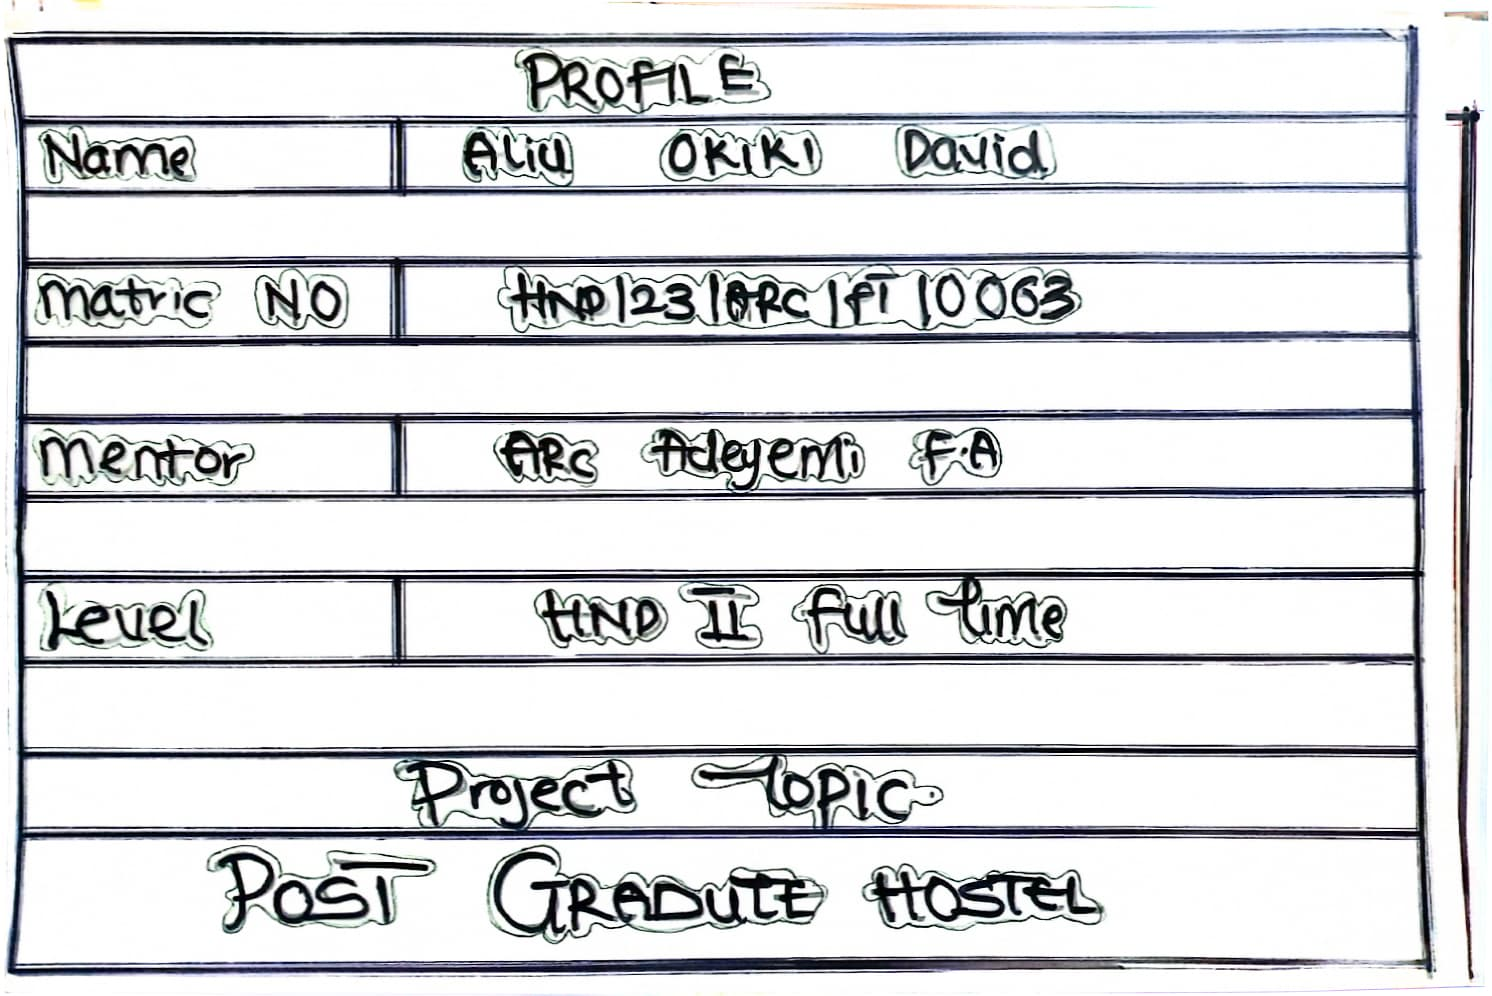 PROFILE
Name Aliu OKIKI David
Matric NO HND/23/ARC/FT/0063
Mentor ARC Adeyemi F.A
Level HND II Full time
Project Topic.
POST GRADUTE HOSTEL